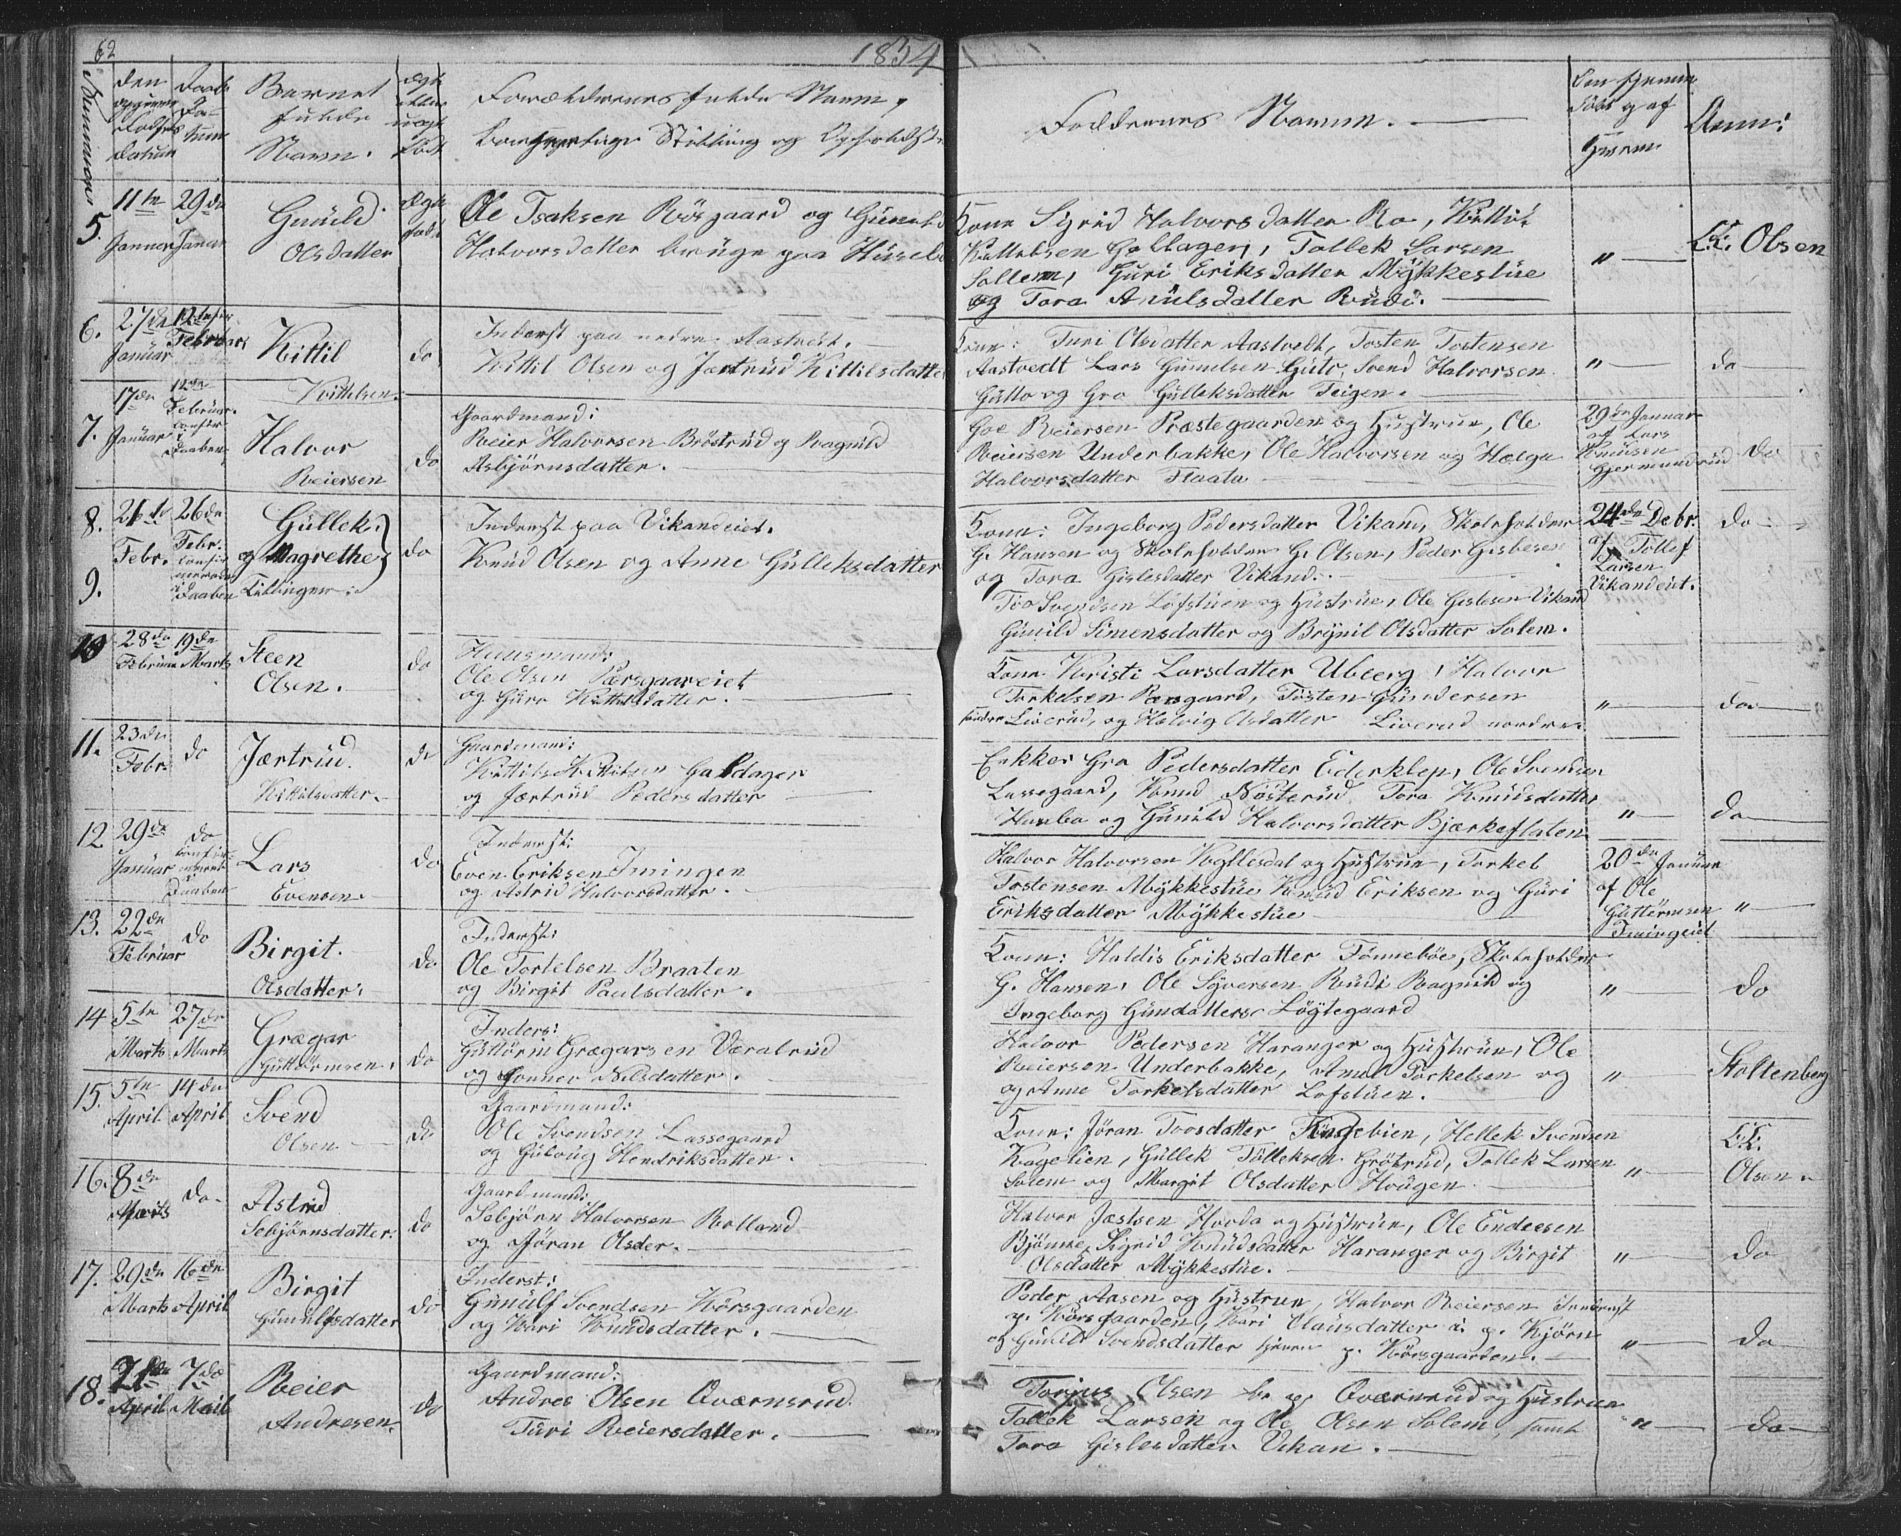 62
1834
Nummer
den
opgivne
Fødsels
Datum
Daab
Da-
tum
Barnet
fulde
Navn.
Ægte
eller
uægte
født
Forældrenes fulde Navn,
borgerlige Stilling og Opholdst
Faddernes Navn.
Om hjemme
døbt og af
hvem.
Anm:
5.
11te
Januar
29de
Januar
Gunild
Olsdatter
Ægte
født
Ole Isaksen Rösgaard og Gunild
Halvorsdatter bruge paa Huseb
Kone Sigrid Halvorsdatter Ro, Kittil
Kittelsen Gollager, Tollek Larsen
Sollem, Guri Eriksdatter Mykkestue
og Tora Anulsdatter Rudi.
"
Kl. Olsen
6.
27de
Januar
12te
Februar
Kittil
Kittilsen
do
Inderst paa nedre Aastvedt.
Kittil Olsen og Jærtrud Kittilsdatter
Kone: Turi Olsdatter Aastvedt, Tosten Tostensen
Aastvedt Lars Gunulsen Guto, Svend Halvorsen
Gutto og Gro Gulleksdatter Teigen.
"
do
7.
17de
Januar
12de
Februar
Daaben
Halvor
Reiersen
do
Gaardmand:
Reier Halvorsen Bröstrud og Ragnild
Asbjørnsdatter.
Goe Reiersen Præstegaarden og Hustrue, Ole
Reiersen Underbakke, Ole Halvorsen og Helga
Halvorsdatter Staata
29de Januar
af Lars
Knudsen
Gjermundrud
do
8.
9.
21de
Febr.
26de
Febr.
Daaben
Gullek
og Magrethe
Tvillinger:
do
Inderst paa Vikandeiet.
Knud Olsen og Anne Gulleksdatter
Kone: Ingeborg Pedersdatter Vikand, Skoleholder
G. Hansen og Skoleholder G. Olsen, Peder Gislesen
og Tora Gislesdatter Vikand.
Tro Svendsen Løfstuen og Hustrue, Ole Gislesen Vikand
Gunild Simensdatter og Brynil Olsdatter Solem.
24de Debr.
af Tollef
Larsen
Vikandeiet.
do
10
28de
Februar
19de
Marts
Steen
Olsen.
do
Huusmand:
Ole Olsen Pærsgaareiet
og Guro Kittilsdatter.
Kone Kristi Larsdatter Uberg, Halvor
Torkelsen Pærsgaard, Tosten Gundersen
søndre Liverud, og Helvig Olsdatter Liverud nordre
"
do
11.
23de
Febr.
do
Jærtrud.
Kittilsdatter.
do
Gaardmand:
Kittil Kittilsen Galdager
og Jærtrud Pedersdatter
Enkke: Gro Pedersdatter Ederklep, Ole Svendsen
Lassegaard, Knud Nösterud Tora Knudsdatter
Hanbo og Gunild Halvorsdatter Bjærkeflaten
"
do
12
29de
Januar
do
Daaben
Lars
Evensen
do
Inderst:
Even Eriksen Imingen
og Astrid Halvorsdatter.
Halvor Halvorsen Kollesdal og Hustrue, Torkel
Tostensen Mykkestue Knud Eriksen og Guri
Eriksdatter Mykkestue
20de Januar
af Ole
Guttormsen
Imingeiet
"
13.
22de
Februar
do
Birgit.
Olsdatter.
do
Inderst:
Ole Tortelsen Braaten
og Birgit Paulsdatter.
Kone: Haldis Eriksdatter Tönneböe, Skoleholder
G. Hansen, Ole Syversen Rudi Ragnild og
Ingeborg Gundatters Löytegaard
"
do
14
5te
Marts
27de
Marts
Grægar
Guttormsen.
do
Inders:
Guttorm Grægarsen Væralrud
og Gonner Nilsdatter.
Halvor Pedersen Haranger og Hustrue, Ole
Reiersen Underbakke, Amul Torkelsen og
og Anne Torkelsdatter Lofstuen.
"
Stoltenberg
15.
5te
April
14de
April
Svend
Olsen
do
Gaardmand:
Ole Svendsen Lassegaard
og Guloug Hendriksdatter.
Kone: Jøran Troosdatter Kagelien, Hellek Svendsen
Kagelien, Gullek Tölleksen Grötrud, Tollek Larsen
Solem og Margit Olsdatter Hougen
"
Kl.
Olsen
16.
8de
Marts
do
Astrid
Sebjørnsdatter.
do
Gaardmand:
Sebjørn Halvorsen Rolland
og Jöran Olsder.
Halvor Jæstsen Hovda og Hustrue, Ole Endresen
Bjønne, Sigrid Knudsdatter Haranger og Birgit
Olsdatter Mykkestue.
"
do
17.
29de
Marts
16de
April
Birgit
Gunulfsdatter
do
Inderst:
Gunulf Svendsen Korsgaarden
og Kari Knudsdatter.
Peder Aasen og Hustrue, Halvor Reiersen Inderst
p. Korsgaarden, Kari Clausdatter i. p. Kjörn
og Gunild Svendsdatter hjemme p. Korsgaarden.
"
do
18.
21de
April
7de
Mai
Reier
Andresen.
do
Gaardmand:
Andres Olsen Qværnsrud
Turi Reiersdatter.
Torjus Olsen br. p. Qværnrud og Hustrue
Tollek Larsen og Ole Olsen Solem, samt
Tora Gislesdatter Vikan.
"
do